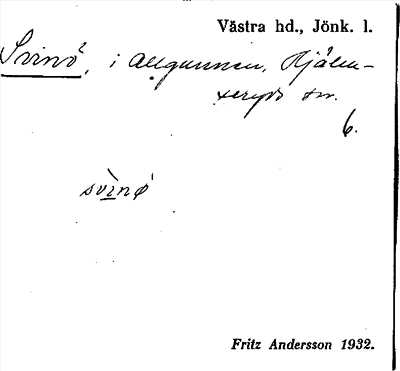 Västra hd., Jönk. l.
Svinö, i Allgunnen, Hjälm-
seryds sn.
6.
svìnø
Fritz Andersson 1932.